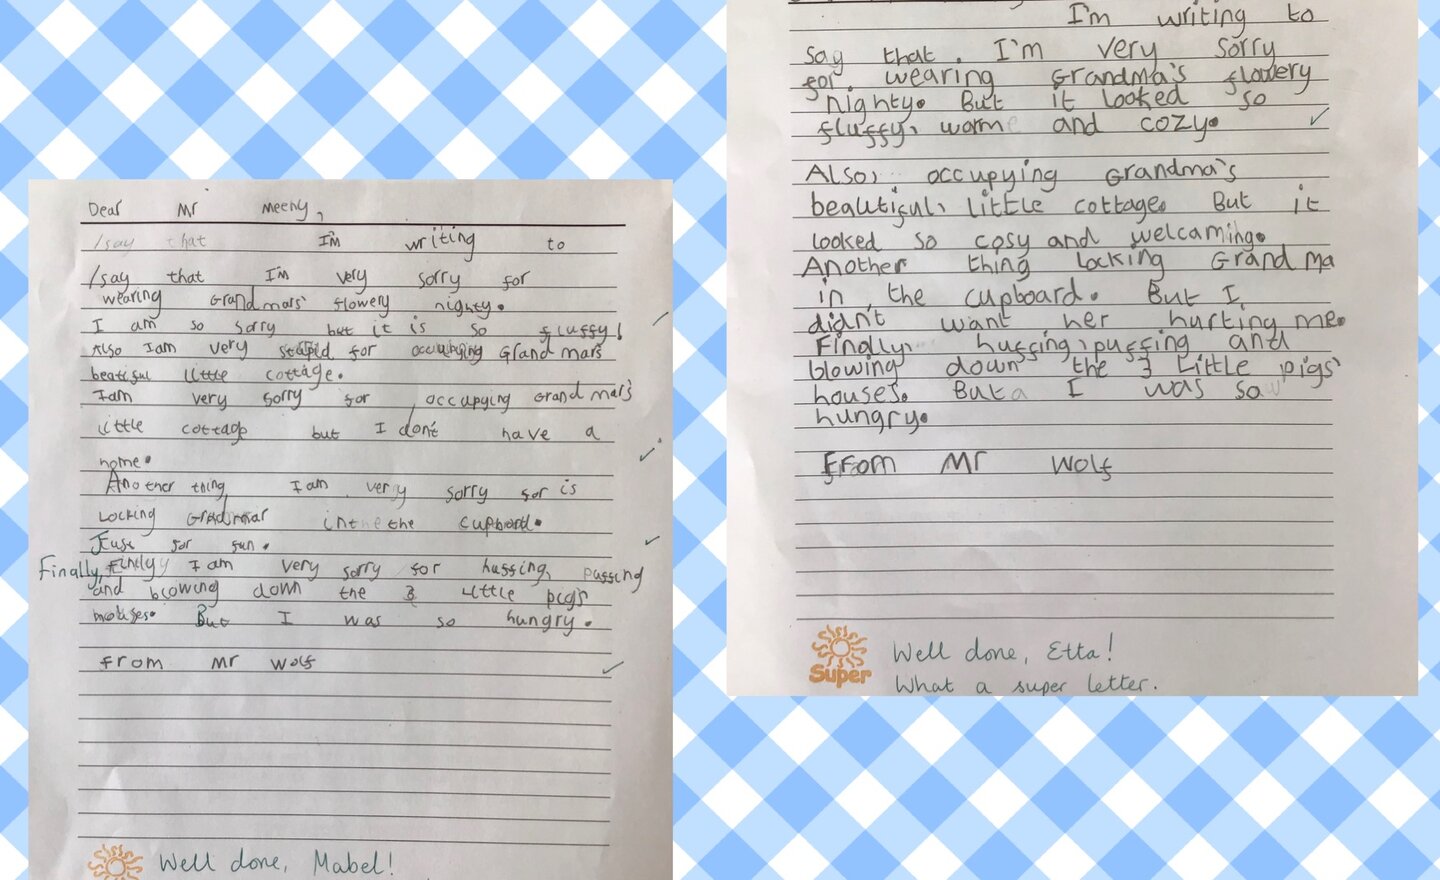 Dear Mr Meeny,
/say that I'm writing to
/say that I'm very sorry for
wearing Grandmars' flowery nighty.
I am so sorry but it is so fluffy!
Also I am very stupid for occupying Grandmars
beatiful little cottage.
I am very sorry for occupying Grandmar's
little cottage but I don't have a
home.
Another thing I am very sorry for is
Locking Grandmar in the the cupbord.
Just for fun.
Finally, I am very sorry for huffing, puffing
and blowing down the 3 Little pigs
houses. But I was so hungry.
from Mr Wolf
Well done, Mabel!
I'm writing to
say that I'm very sorry
for wearing Grandma's flowery
nighty. But it looked so
fluffy, warm and cozy.
Also, occupying Grandma's
beautiful, little cottage. But it
looked so cosy and welcaming.
Another thing Locking Grandma
in the cupboard. But I
didn't want her hurting me.
Finally, huffing, puffing and
blowing down the 3 Little pigs'
houses. But I was so
hungry.
From Mr Wolf
Super
Well done, Etta!
What a super letter.